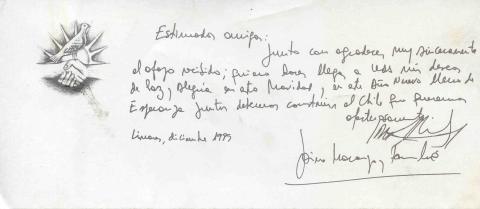 Estimados amigos:
Junto con agradecer muy sinceramente
el apoyo recibido; quiero hacer llegar a Uds mis deseos
de Paz y Alegría en esta Navidad, y en este Año Nuevo lleno de
Esperanza Juntos debemos construir el Chile que queremos
Linares, diciembre 1989
y Familia